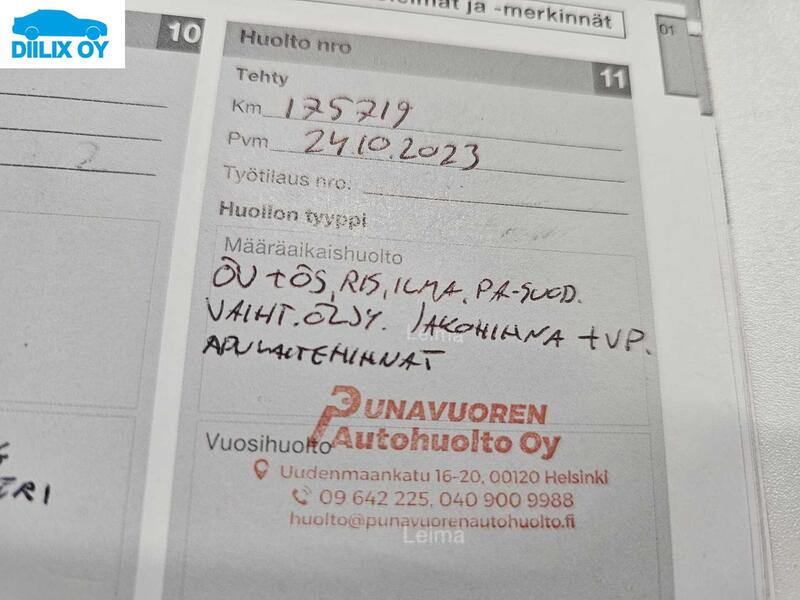 DIILIX OY
-merkinnät
ja
10
Huolto nro
11
01
Tehty
Km 175719
Pvm 24.10.2023
2
Työtilaus nro.
Huollon tyyppi
Määräaikaishuolto
ÖV+ÖS, RIS, ILMA, PA-SUOD.
VAIHT.ÖLJY. JAKOHIHNA + VP.
Leima
APULAITEHIHNAT
PUNAVUOREN
Autohuolto Oy
Vuosihuolto
Uudenmaankatu 16-20, 00120 Helsinki
09 642 225, 040 900 9988
huolto@punavuorenautohuolto.fi
Leima
ERI